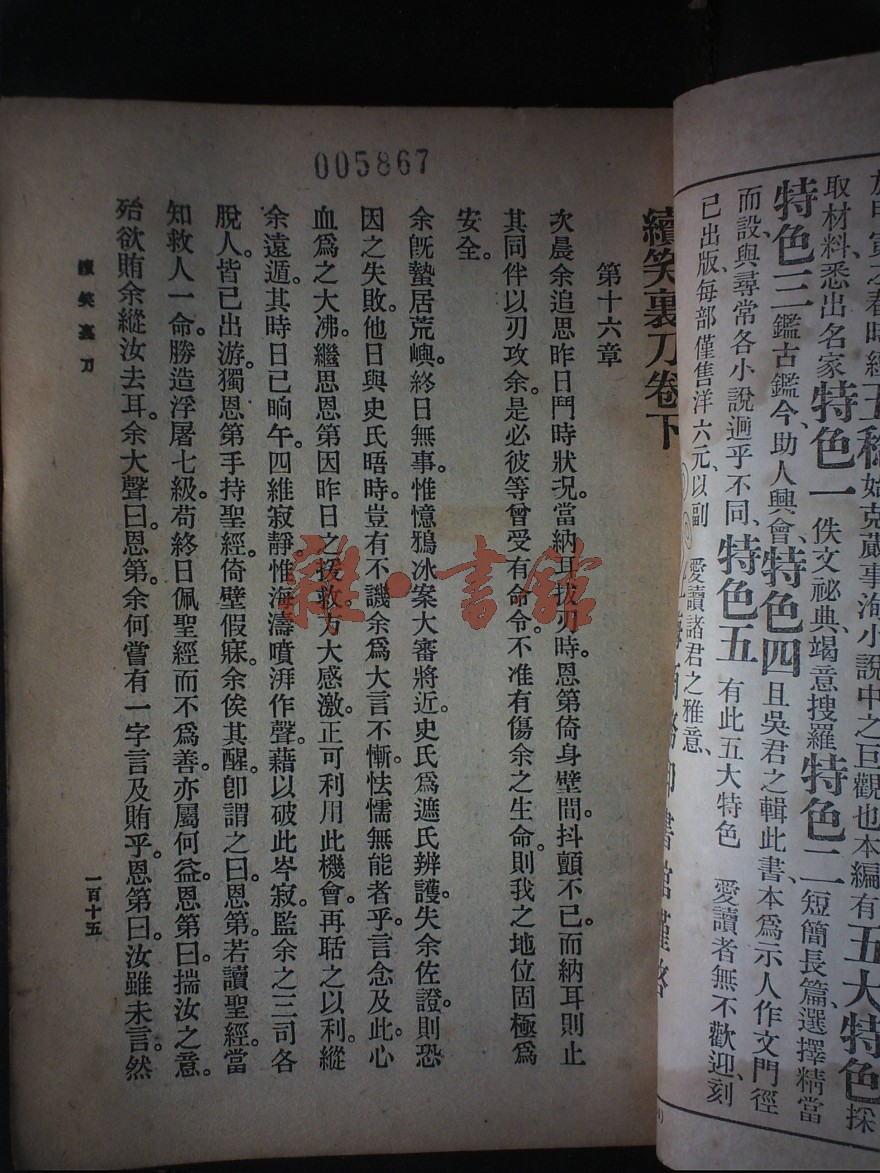 取材料、悉出名家、特色一 佚文祕典、竭意搜羅、特色二 短簡長篇、選擇精當
特色三 鑑古鑑今、助人興會、特色四 且吳君之輯此書、本爲示人作文門徑
而設、與尋常各小說迥乎不同、特色五 有此五大特色 愛讀者無不歡迎、刻
已出版、每部僅售洋六元、以副 愛讀諸君之雅意、
005867
續笑裏刀卷下
第十六章
次晨余追思昨日鬥時狀況。當納耳拔刃時。恩第倚身壁間。抖顫不已。而納耳則止
其同伴以刃攻余。是必彼等曾受有命令。不准有傷余之生命。則我之地位固極爲
安全。
余旣蟄居荒嶼。終日無事。惟憶鴉冰案大審將近。史氏爲遮氏辨護。失余佐證。則恐
因之失敗。他日與史氏晤時。豈有不譏余爲大言不慚怯懦無能者乎。言念及此。心
血爲之大沸。繼思恩第因昨日之援救。方大感激。正可利用此機會。再聒之以利。縱
余遠遁。其時日已晌午。四維寂靜。惟海濤噴湃作聲。藉以破此岑寂。監余之三司各
脫人。皆已出游。獨恩第手持聖經。倚壁假寐。余俟其醒。卽謂之曰。恩第。若讀聖經。當
知救人一命。勝造浮屠七級。苟終日佩聖經而不爲善。亦屬何益。恩第曰。揣汝之意。
殆欲賄余縱汝去耳。余大聲曰。恩第。余何嘗有一字言及賄乎。恩第曰。汝雖未言。然
續笑裏刀
一百十五
雜·書館